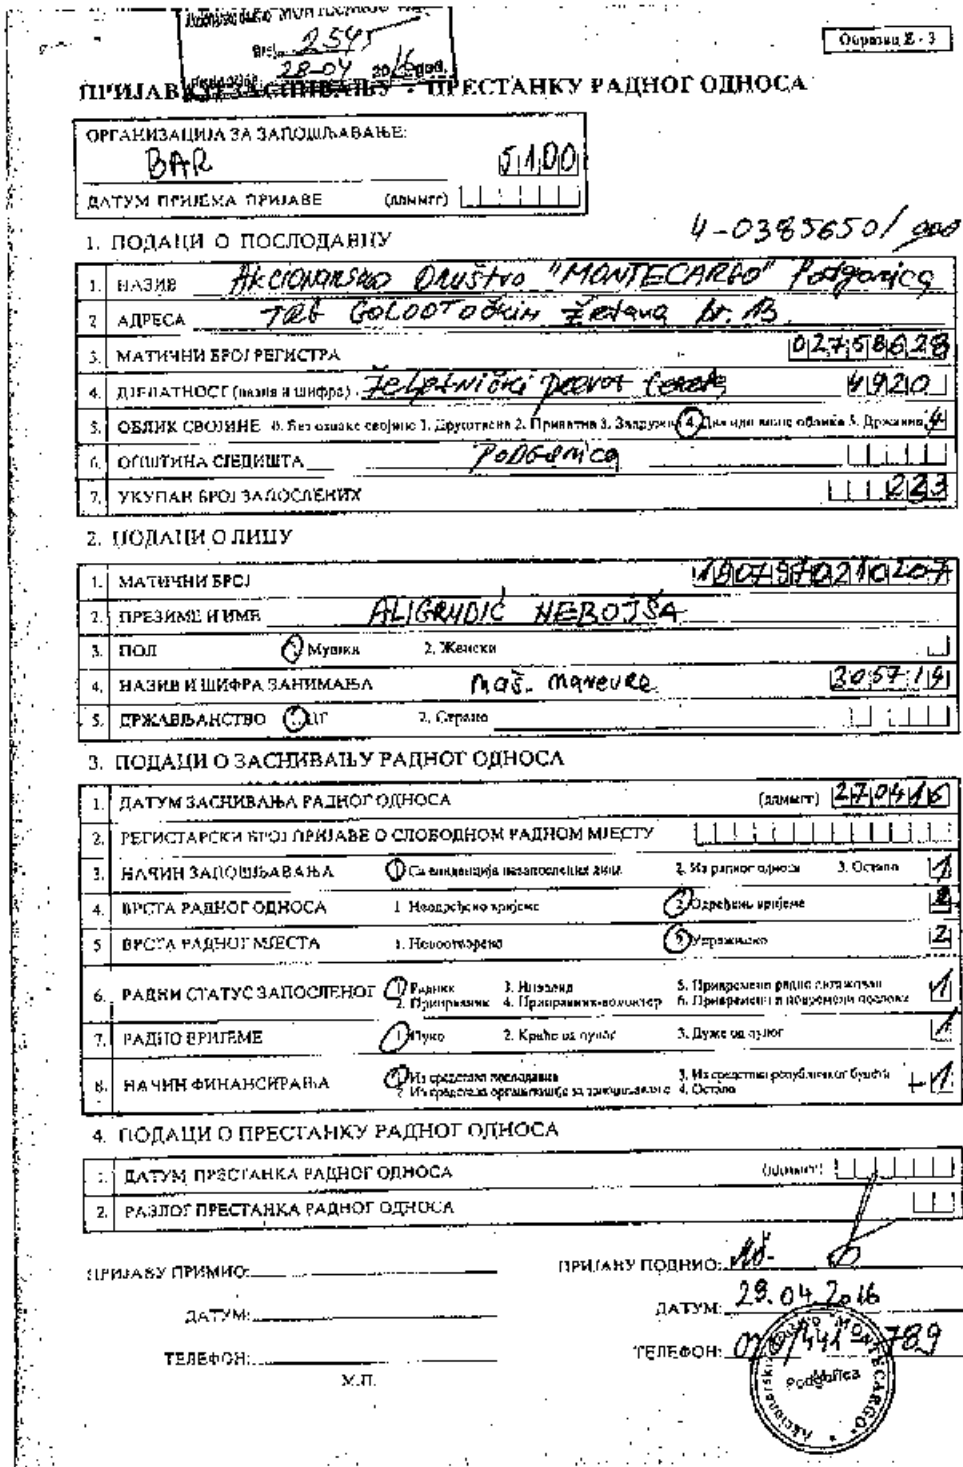 Broj 2545
28-04 2016 god.
Образац Е - 3
ПРИЈАВА О ЗАСНИВАЊУ - ПРЕСТАНКУ РАДНОГ ОДНОСА
ОРГАНИЗАЦИЈА ЗА ЗАПОШЉАВАЊЕ:
BAR 5100
ДАТУМ ПРИЈЕМА ПРИЈАВЕ (ддммгг)
4-0385650/
1. ПОДАЦИ О ПОСЛОДАВЦУ
1. НАЗИВ Akcionarsko Društvo "MONTECARGO" Podgorica
2 АДРЕСА TRG GOLOOTOČKIH Žrtava br. 13
3. МАТИЧНИ БРОЈ РЕГИСТРА 02758628
4. ДЈЕЛАТНОСТ (назив и шифра) Željeznički prevoz tereta 4920
5. ОБЛИК СВОЈИНЕ 0. Без ознаке својине 1. Друштвена 2. Приватна 3. Задружна 4. Два или више облика 5. Државна 4
6. ОПШТИНА СЈЕДИШТА Podgorica
7. УКУПАН БРОЈ ЗАПОСЛЕНИХ 223
2. ПОДАЦИ О ЛИЦУ
1. МАТИЧНИ БРОЈ 1907970210207
2. ПРЕЗИМЕ И ИМЕ ALIGRUDIĆ NEBOJŠA
3. ПОЛ 1 Мушки 2. Женски
4. НАЗИВ И ШИФРА ЗАНИМАЊА maš. manevre 2057 19
5. ДРЖАВЉАНСТВО 1. ЦГ 2. Страно
3. ПОДАЦИ О ЗАСНИВАЊУ РАДНОГ ОДНОСА
1. ДАТУМ ЗАСНИВАЊА РАДНОГ ОДНОСА (ддммгг) 270416
2. РЕГИСТАРСКИ БРОЈ ПРИЈАВЕ О СЛОБОДНОМ РАДНОМ МЈЕСТУ
3. НАЧИН ЗАПОШЉАВАЊА 1 Са евиденција незапослених лица 2. Из радног односа 3. Остало 1
4. ВРСТА РАДНОГ ОДНОСА 1 Неодређено вријеме 2 Одређено вријеме 2
5 ВРСТА РАДНОГ МЈЕСТА 1. Новоотворено Упражњено 2
6. РАДНИ СТАТУС ЗАПОСЛЕНОГ 1 Радник 3. Инвалид 5. Привремено радно ангажован 1
2. Приправник 4. Приправник-волонтер 6. Привремени и повремени послови
7. РАДНО ВРИЈЕМЕ 1 Пуно 2. Краће од пуног 3. Дуже од пуног 1
8. НАЧИН ФИНАНСИРАЊА 1 Из средстава послодавца 3. Из средстава републичког буџета 1
2 Из средстава организације за запошљавање 4. Остало
4. ПОДАЦИ О ПРЕСТАНКУ РАДНОГ ОДНОСА
1. ДАТУМ ПРЕСТАНКА РАДНОГ ОДНОСА (ддммгг)
2. РАЗЛОГ ПРЕСТАНКА РАДНОГ ОДНОСА
ПРИЈАВУ ПРИМИО: ПРИЈАВУ ПОДНИО:
ДАТУМ: ДАТУМ: 29.04.2016
ТЕЛЕФОН: ТЕЛЕФОН: 070/441-789
М.П.
Akcionarsko Društvo "MONTECARGO"
Podgorica